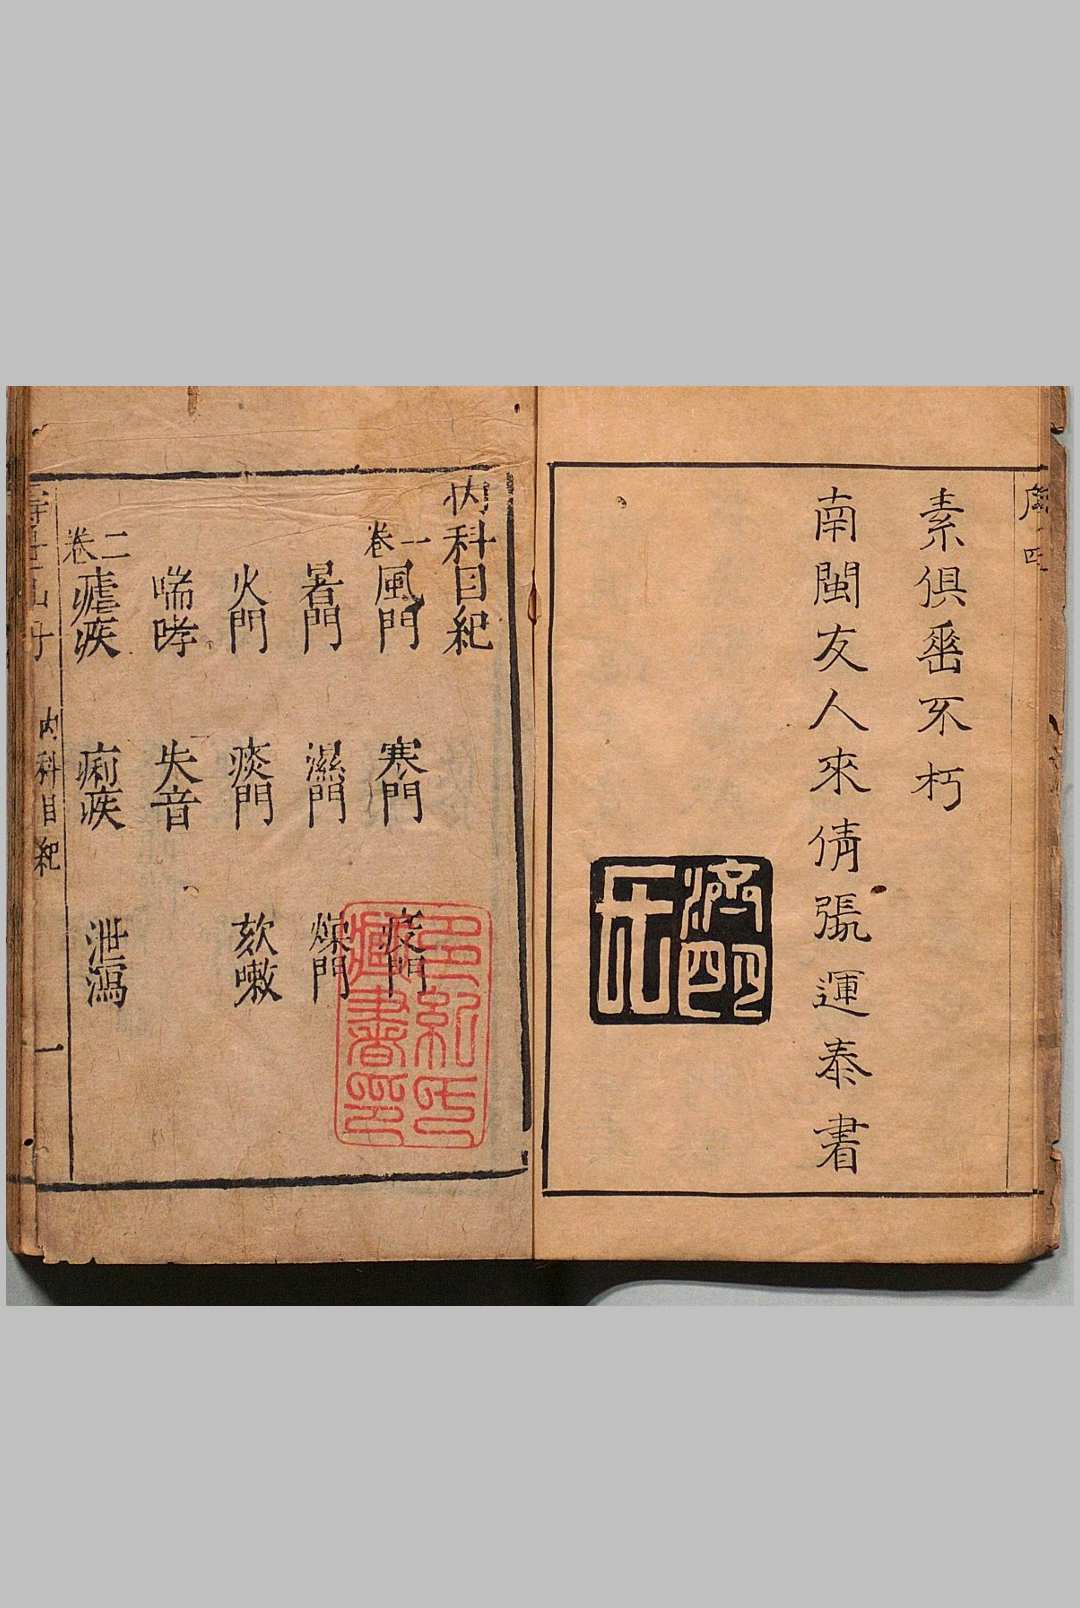 素俱垂不朽
南閩友人來倩張運泰書
內科目紀
卷一
風門 寒門 疫門
暑門 濕門 燥門
火門 痰門 欬嗽
喘哮 失音
卷二
瘧疾 痢疾 泄瀉
內科目紀 一
多紀氏
藏書印